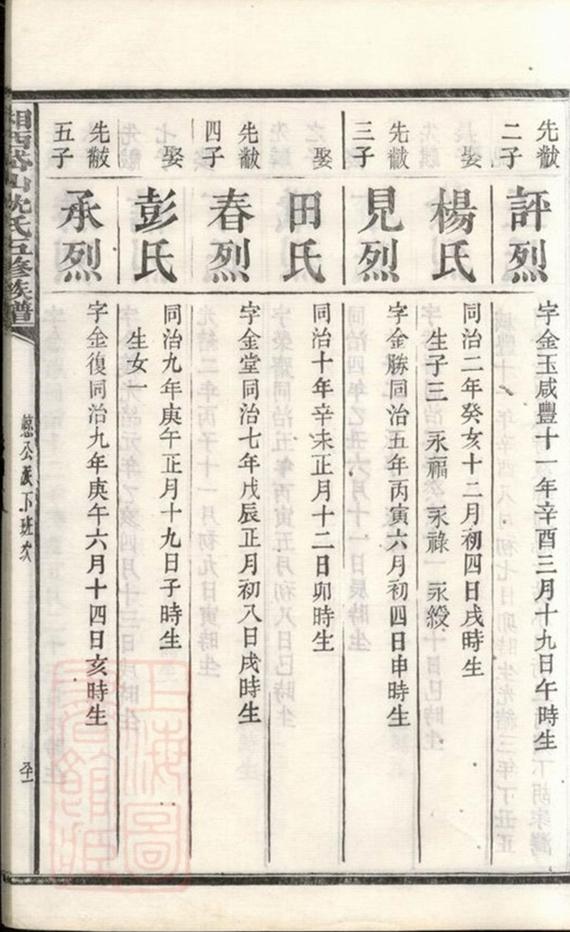 先黻二子
評烈
字金玉咸豐十 年辛酉三月十九日午時生
娶
楊氏
同治二年癸亥十二月初四日戌時生
生子三 永福 永祿 永綬
先黻三子
見烈
字金勝同治五年丙寅六月初四日申時生
娶
田氏
同治十年辛未正月十二日卯時生
先黻四子
春烈
字金堂同治七年戊辰正月初八日戌時生
娶
彭氏
同治九年庚午正月十九日子時生
生女一
先黻五子
承烈
字金復同治九年庚午六月十四日亥時生
沈氏五修族譜
公派下班次
上海圖